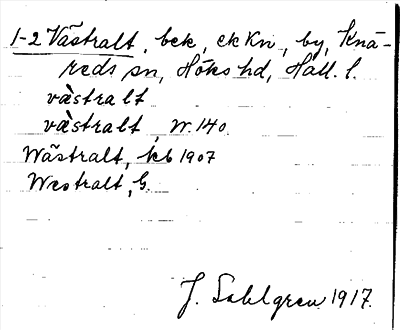 1-2 Västralt, bek, ekKn, by, Knä-
reds sn, Höks hd, Hall. l.
västralt
västralt, W. 140
Wästralt, kb 1907
Westralt, G.
J. Sahlgren 1917.